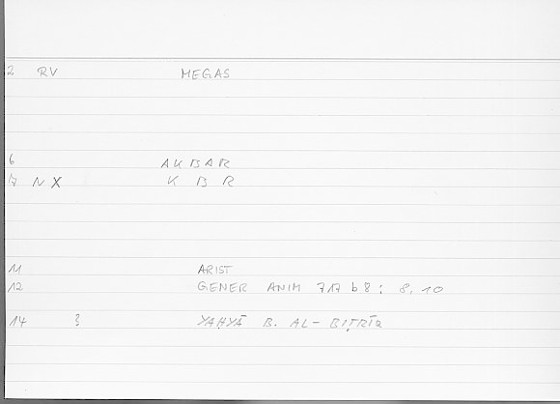 2 RV MEGAS
6 AKBAR
17 N X K B R
11 ARIST
12 GENER ANIM 717 b8; 8,10
14 3 YAḤYĀ B. AL-BIṬRĪQ